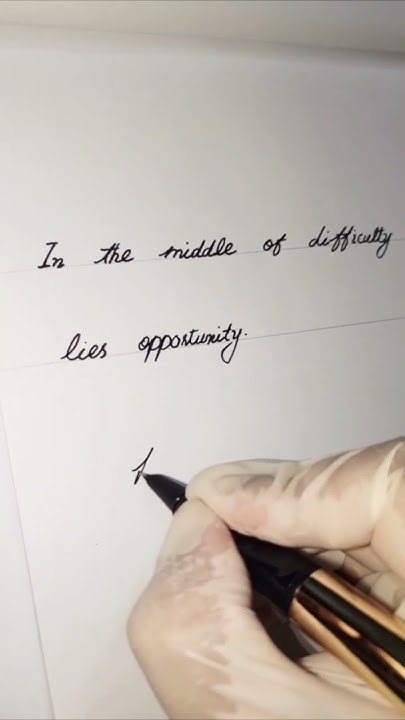 In the middle of difficulty
lies opportunity.